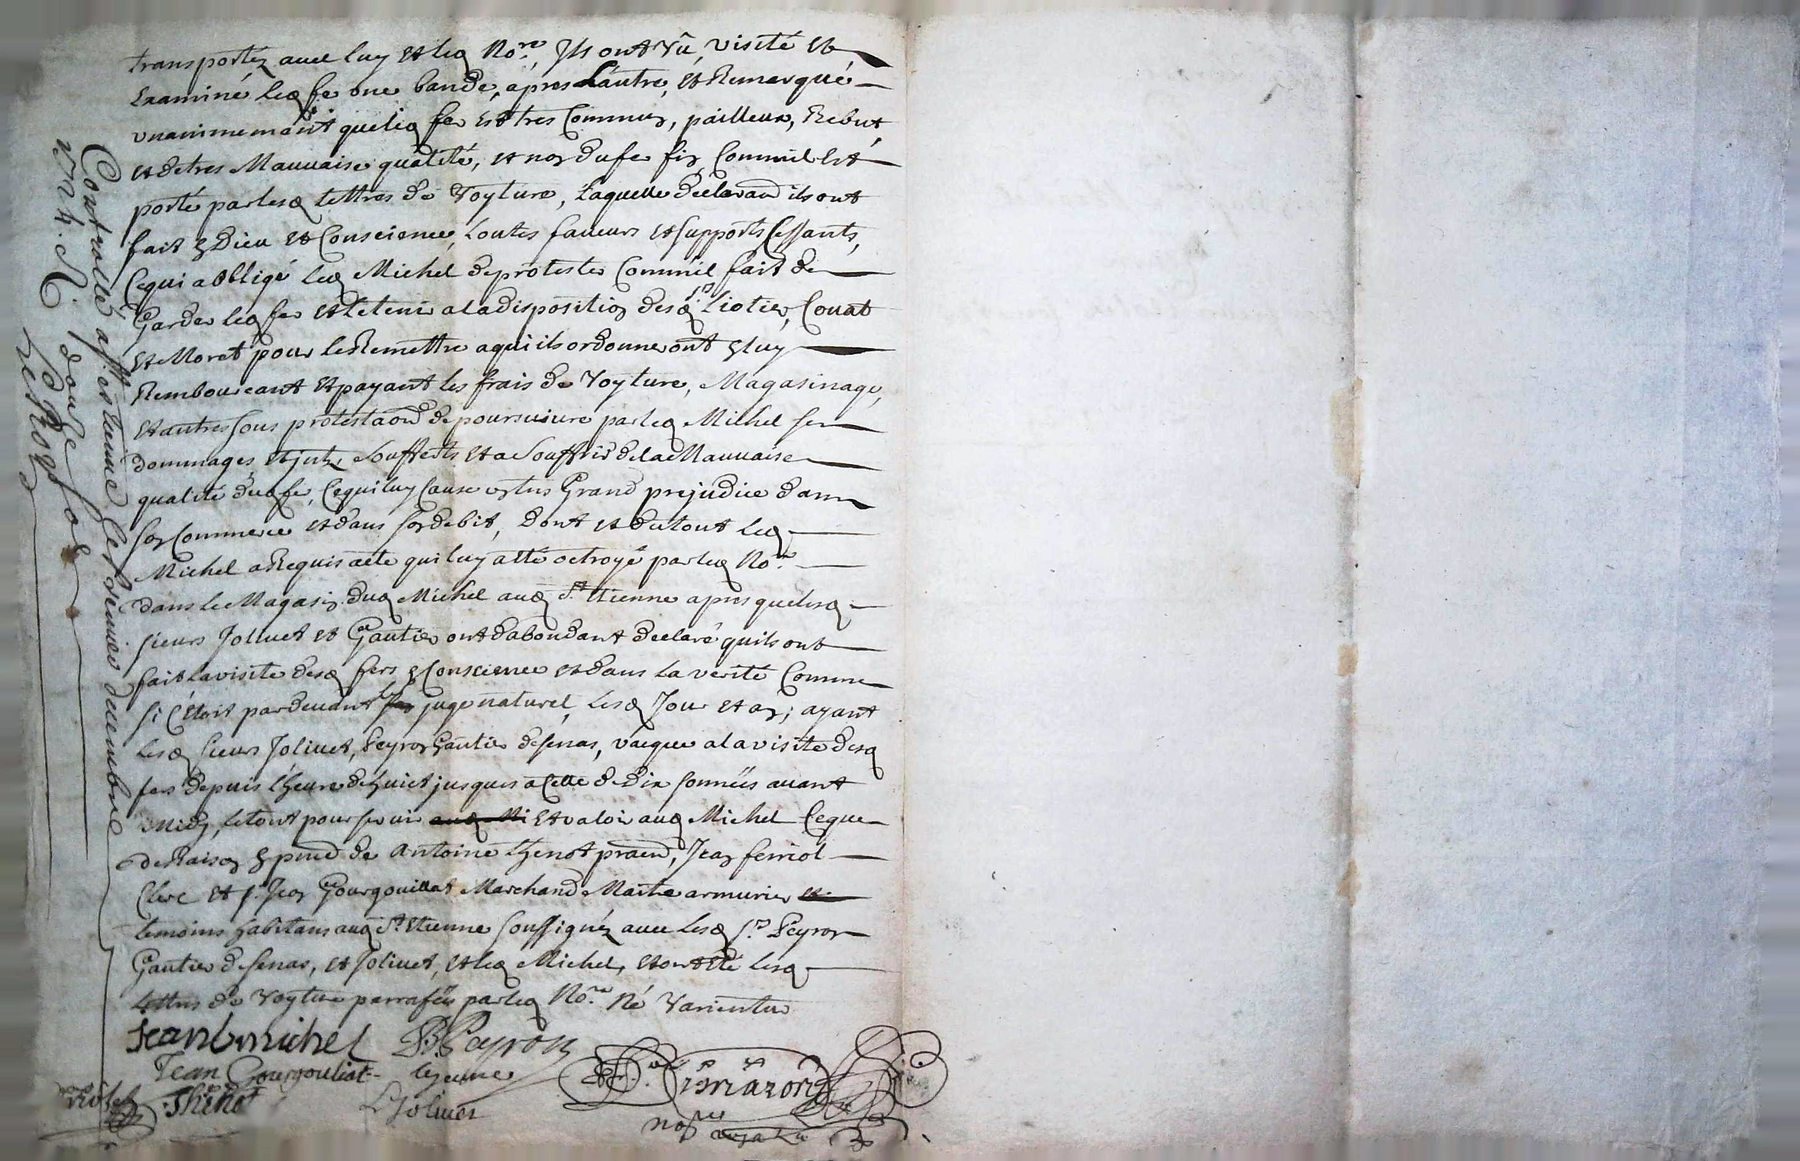 transportéz avec luy et led No.re, Ils ont vû, visité et
Examiné led fer une bande, apres L'autre, et Remarqué
unanimement queled fer est tres Commung, pailleux, Rebut,
et detres Mauvaise qualité, et nog du fer fig Comm'il Est
porté par lesd lettres de Voyture, Laquelle declaraõn ils ont
fait g Dieu et Conscience, toutes faveurs et supports Cessants,
Cequi a obligé led Michel de protester Comm'il fait de
Garder led fer et le tenir a la disposition desd S.rs Liotier, Couat
et Moret pour le Remettre a qui ils ordonneront g luy
Rembourcant et payant les frais de Voyture, Magasinage,
et autres sous protestaõn de poursuivre par led Michel ses
dommages et jnts, soufferts et a souffrir de la Mauvaise
qualité dud fer, Cequi luy Cause ug tres Grand prejudice dans
sog Commerce et dans sog debit, Dont et du tout led
Michel a Requis acte qui luy a été octroyé par led No.re
dans le Magasig dud Michel aud S.t Etienne apres que lesd
sieurs Jolivet et Gautier ont d'abondant declaré quils ont
fait La visite desd fers g Conscience et dans La verité Comme
si C'étoit pardevant Le juge naturel, Lesd Jour et ag; ayant
Lesd sieurs Jolivet, Peyrog Gautier desenas, vacque a la visite desd
fers depuis Lheure de huict jusques a Celle de Dix sonnéés avant
Midy, le tout pour servir et valoir aud Michel Ceque
de Raisog g pnce de Antoine thenot praticien, Jeag ferriol
Clerc et s. Jeag Gourgouillat Marchand Maitre armurier
temoins habitans aud S.t Etienne soussignéz avec lesd s.rs Peyrog
Gautier desenas, et Jolivet, et led Michel, et ont été lesd
Lettres de Voyture parraféés par led No.re Né Varientur
Jean b michel B. Peyron
Jean Gourgouliat lejeune
Violet Thenot L Jolivet
Simazon
no.re royal
Controllé a S.t etienne Le decembre
v. n. 4. R. douze sols